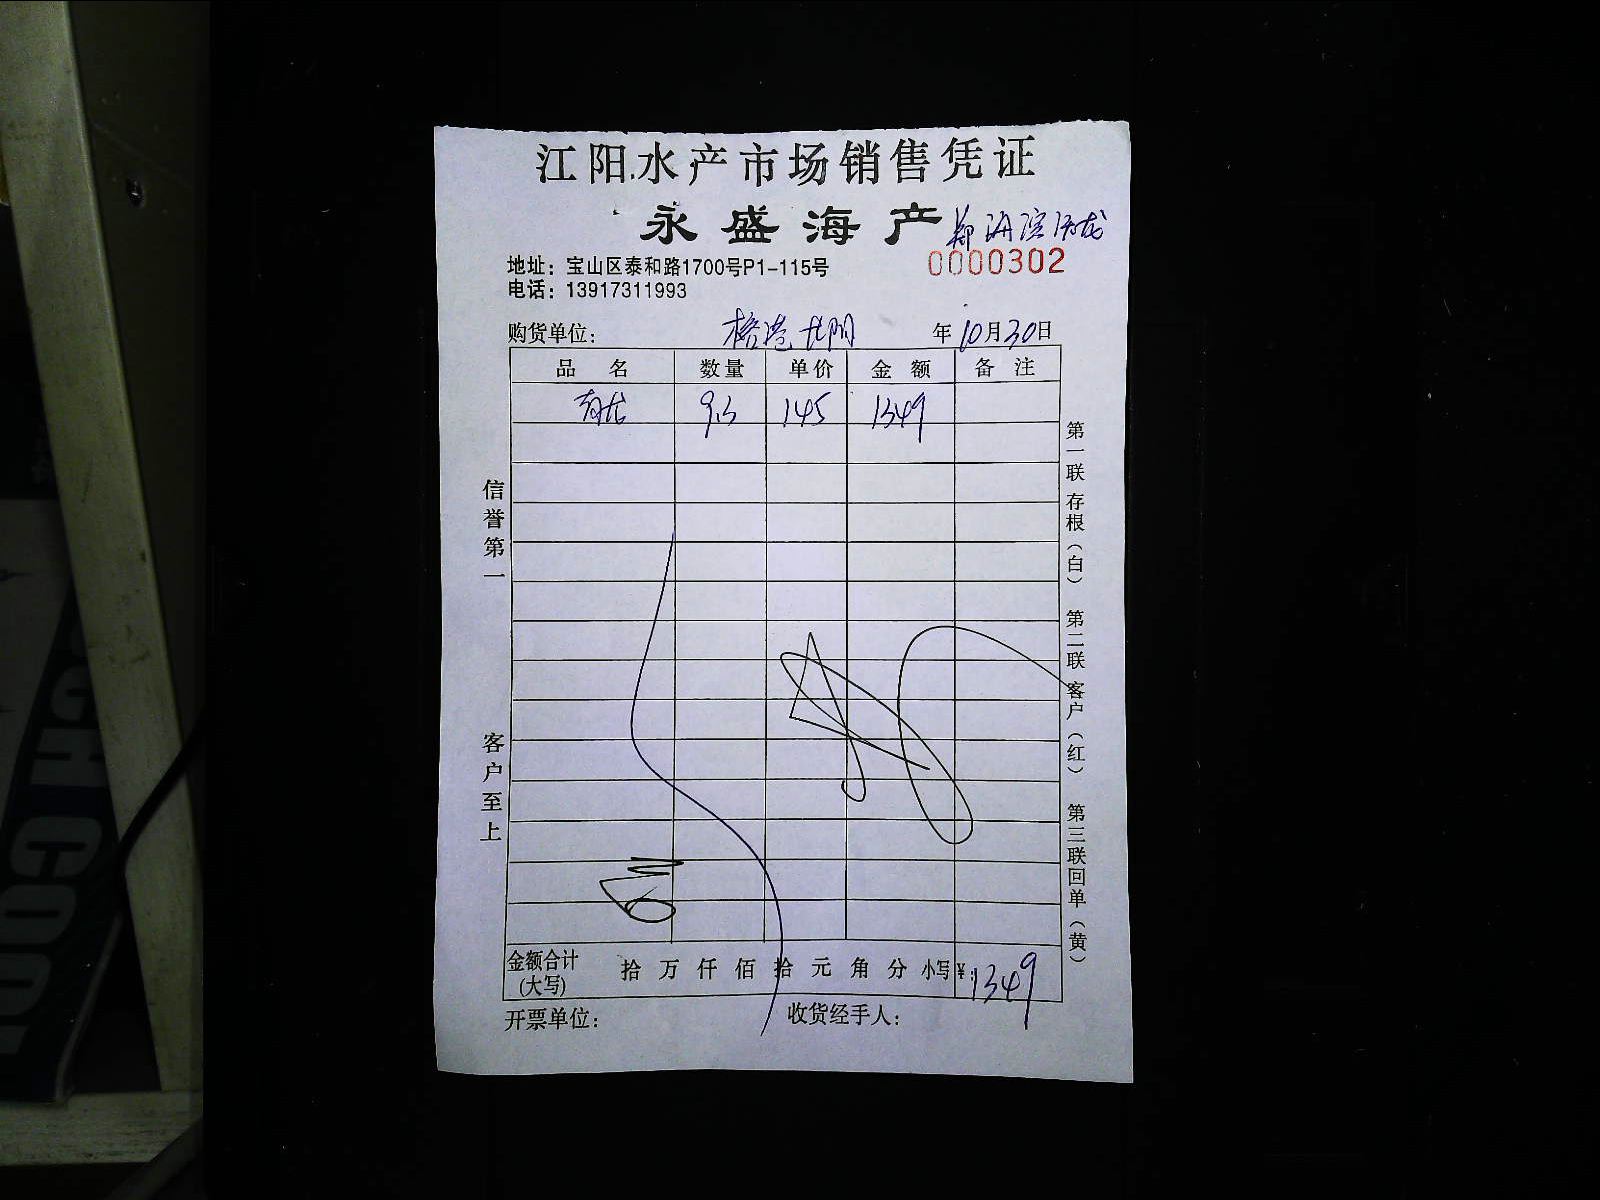 江阳水产市场销售凭证
永盛海产
0000302
地址：宝山区泰和路1700号P1-115号
电话：13917311993
购货单位： 年 10月30日
品 名 数量 单价 金 额 备 注
9.3 145 1349
信誉第一
客户至上
第一联 存根（白） 第二联 客户（红） 第三联 回单（黄）
金额合计 拾 万 仟 佰 拾 元 角 分 小写¥：1349
(大写)
开票单位： 收货经手人：